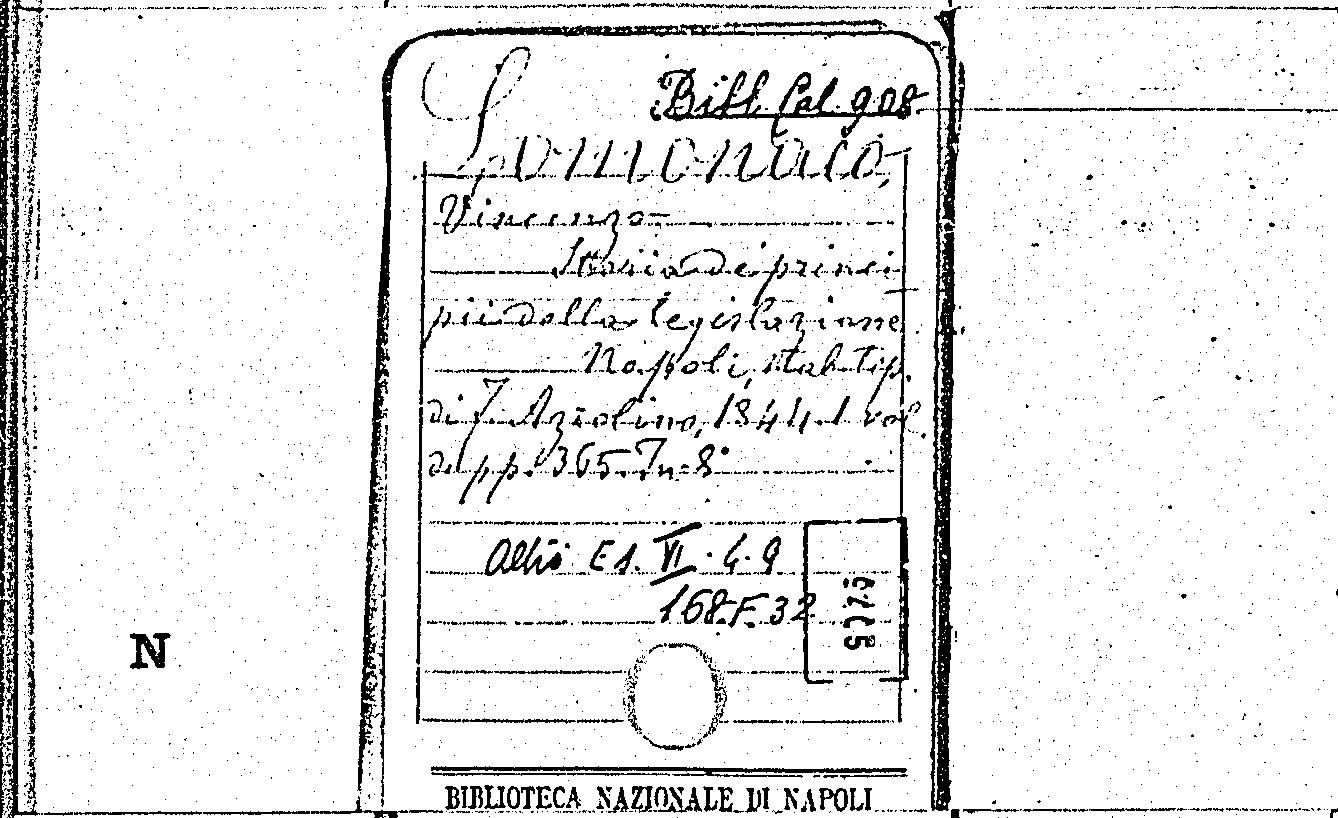 Bibl. Cal. 908
Lomonaco,
Vincenzo
Storia dei princi
pii della legislazione
Napoli, stab. tip.
di F. Azzolino, 1844. 1 vol.
di pp. 365. In-8°
Altro Es. VI. 4. 9
168. F. 32
N
BIBLIOTECA NAZIONALE DI NAPOLI